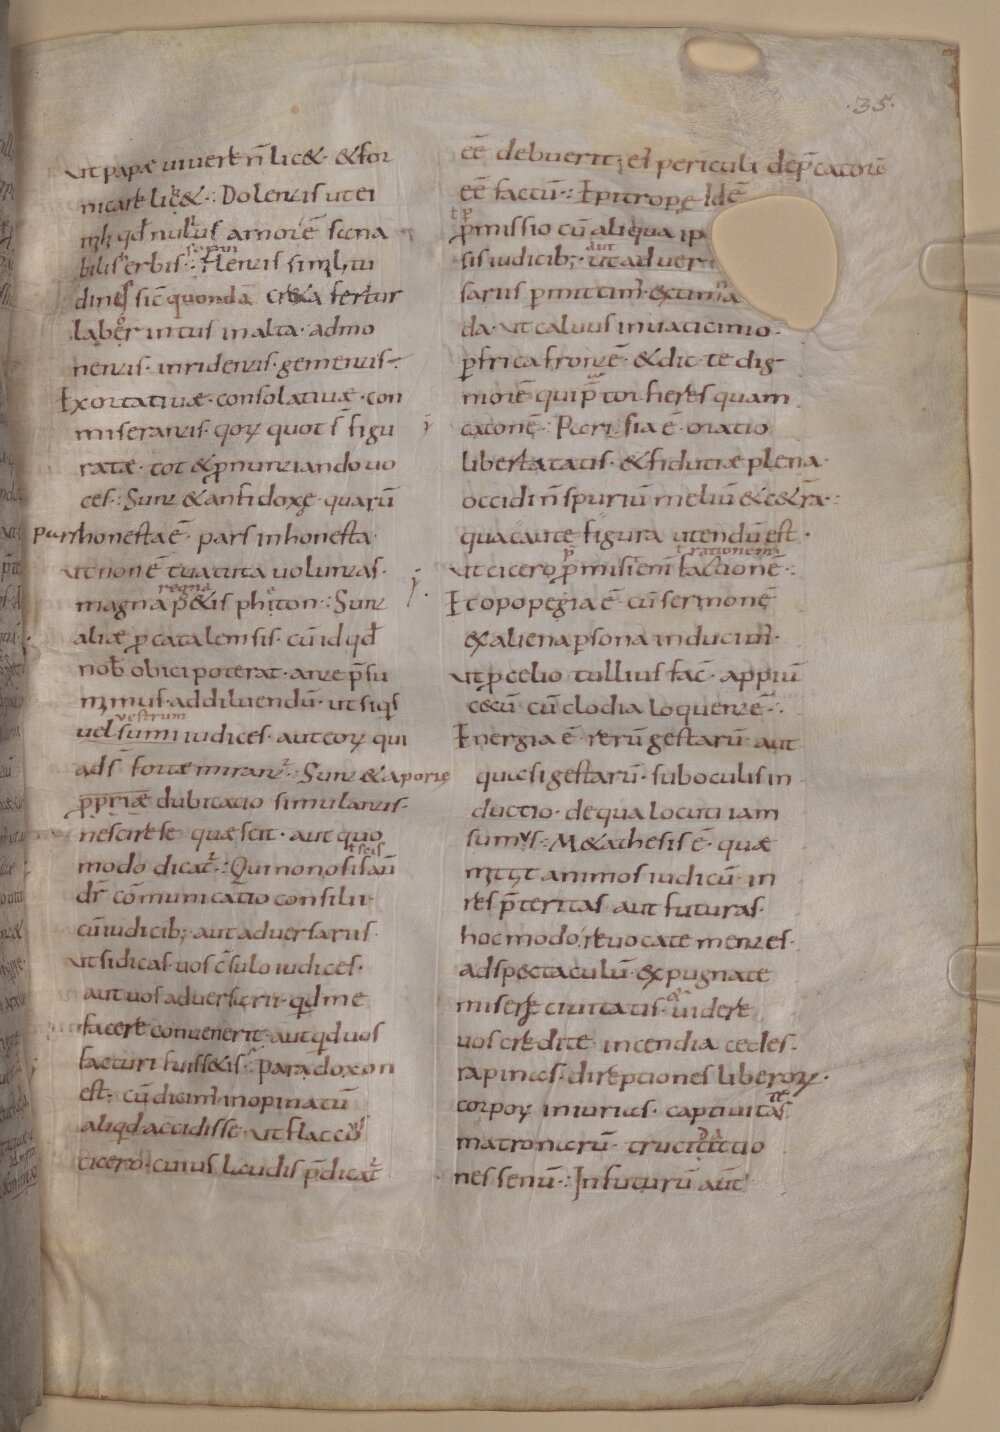 .35.
ut papæ vivere n̄ lic&. & for
nicare lic&.: Dolentis ut ei
mh qd̄ nullus amorē̄ sana
bilis erbis.: flentis similitu
dinē sic quondā cr&a fertur
laberintus in alta. admo
nentis. inridentis. gementis.
Exortativæ. consolativæ. con
miserantis. qoꝝ quot s̄ figu
ratæ. tot & p̄nuntiando vo
ces.: Sunt & anfidoxe. quarū
pars honesta ē. pars inhonesta.
ut non ē tua tuta voluntas.
regna
magna p&is phiton.: Sunt
aliæ p catalemsis. cū id qd̄
nob̄ obici poterat. ante p̄su
mimus. ad diluendū. ut siq̄s
vestrum
vel summi iudices. aut eoꝝ qui
ads̄ forte mirant̄.: Sunt & aporię
p̄priæ dubitatio simulantis.
nescire se quæ scit. aut quo
modo dicat̄.: Qui non osis aū
dr̄ cōmunicatio consilii.
cū iudicib; aut adversariis.
ut si dicas. vos c̄sulo iudices.
aut vos adversarii. qd̄ me
facere convenerit. aut qd̄ vos
facturi fuiss&is. paradoxon
est. cū dicim̄ inopinatū
aliqd accidisse. ut flacco
cicero. cuius laudis p̄dicat̄
eē debuerit; ei periculi dep̄catorē
eē factū.: Epitrope Idē
p̄missio cū aliqua ip
aut
sis iudicib;. ut adver
sariis p̄mittim̄. extima
da. ut calvus in vaticinio.
p̄frica frontē. & dic te dig
niorē qui p̄tor fieres quam
catonē. Parrisia ē. oratio
libertatatis. & fidutiæ plena.
occidi n̄ spuriū meliū & c&ra.:
qua caute figura utendū est.
t rationem
ut cicero p̄misit enī factione.:
Etopopegia ē cū sermonē
ex aliena p̄sona inducim̄.
ut p celio tullius fac̄. appiū
cecū cū clodia loquentē.:
Energia ē rerū gestarū aut
quasi gestarū. sub oculis in
ductio. de qua locuti iam
sumus.: M&athesis ē. quæ
mittit animos iudicū in
res p̄teritas aut futuras.
hoc modo; revocate mentes.
ad spectaculū expugnate
misere civitatis. videre
vos credite incendia cedes.
rapinas. direptiones liberoꝝ.
corpoꝝ iniurias. captivitates
matronarū. trucidatio
nes senū.: In futurū aūt